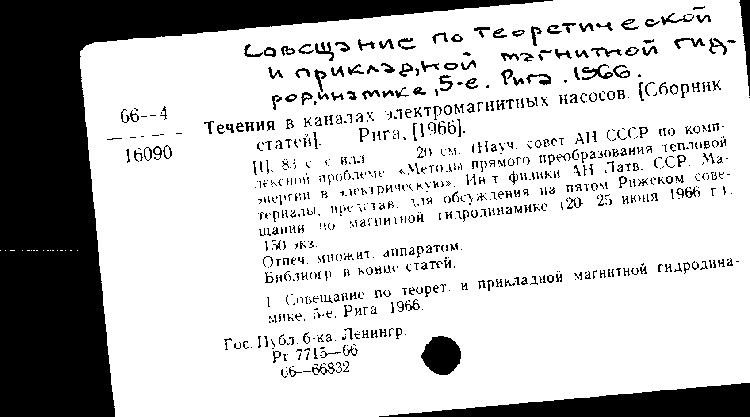 Совещание по теоретической
и прикладной магнитной гид-
родинамике, 5-е. Рига. 1966.
66--4
16090
Течения в каналах электромагнитных насосов. [Сборник
статей]. Рига, [1966].
[1], 83 с. с илл. 20 см. (Науч. совет АН СССР по комп-
лексной проблеме «Методы прямого преобразования тепловой
энергии в электрическую». Ин-т физики АН Латв. ССР. Ма-
териалы, представ. для обсуждения на пятом Рижском сове-
щании по магнитной гидродинамике (20 25 июня 1966 г.).
150 экз.
Отпеч. множит. аппаратом.
Библиогр. в конце статей.
1. Совещание по теорет. и прикладной магнитной гидродина-
мике. 5-е. Рига. 1966.
Гос. Публ. б-ка. Ленингр.
Рг 7715—66
66--66832